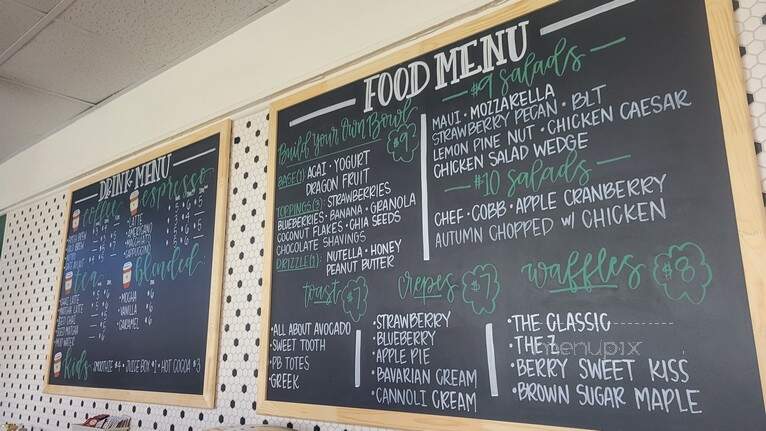 DRINK MENU
coffee
espresso
COLD BREW
LATTE
AMERICANO
MACCHIATO
CAPPUCCINO
tea
blended
CHAI LATTE
MATCHA LATTE
MOCHA
VANILLA
CARAMEL
kids
SMOOTHIE $4 • JUICE BOX $1 • HOT COCOA $3
FOOD MENU
Build Your Own Bowl $9
BASE(1) ACAI • YOGURT
DRAGON FRUIT
TOPPINGS(3): STRAWBERRIES
BLUEBERRIES • BANANA • GRANOLA
COCONUT FLAKES • CHIA SEEDS
CHOCOLATE SHAVINGS
DRIZZLE(1): NUTELLA • HONEY
PEANUT BUTTER
$9 Salads
MAUI • MOZZARELLA
STRAWBERRY PECAN • BLT
LEMON PINE NUT • CHICKEN CAESAR
CHICKEN SALAD WEDGE
$10 Salads
CHEF • COBB • APPLE CRANBERRY
AUTUMN CHOPPED W/ CHICKEN
toast $7
• ALL ABOUT AVOCADO
• SWEET TOOTH
• PB TOTES
• GREEK
crepes $7
• STRAWBERRY
• BLUEBERRY
• APPLE PIE
• BAVARIAN CREAM
• CANNOLI CREAM
waffles $8
• THE CLASSIC
• THE 7
• BERRY SWEET KISS
• BROWN SUGAR MAPLE
menupix